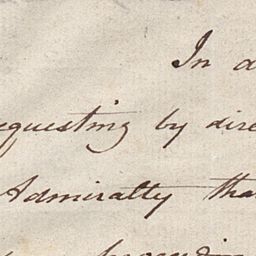 In a
equesting by dire
Admiralty tha